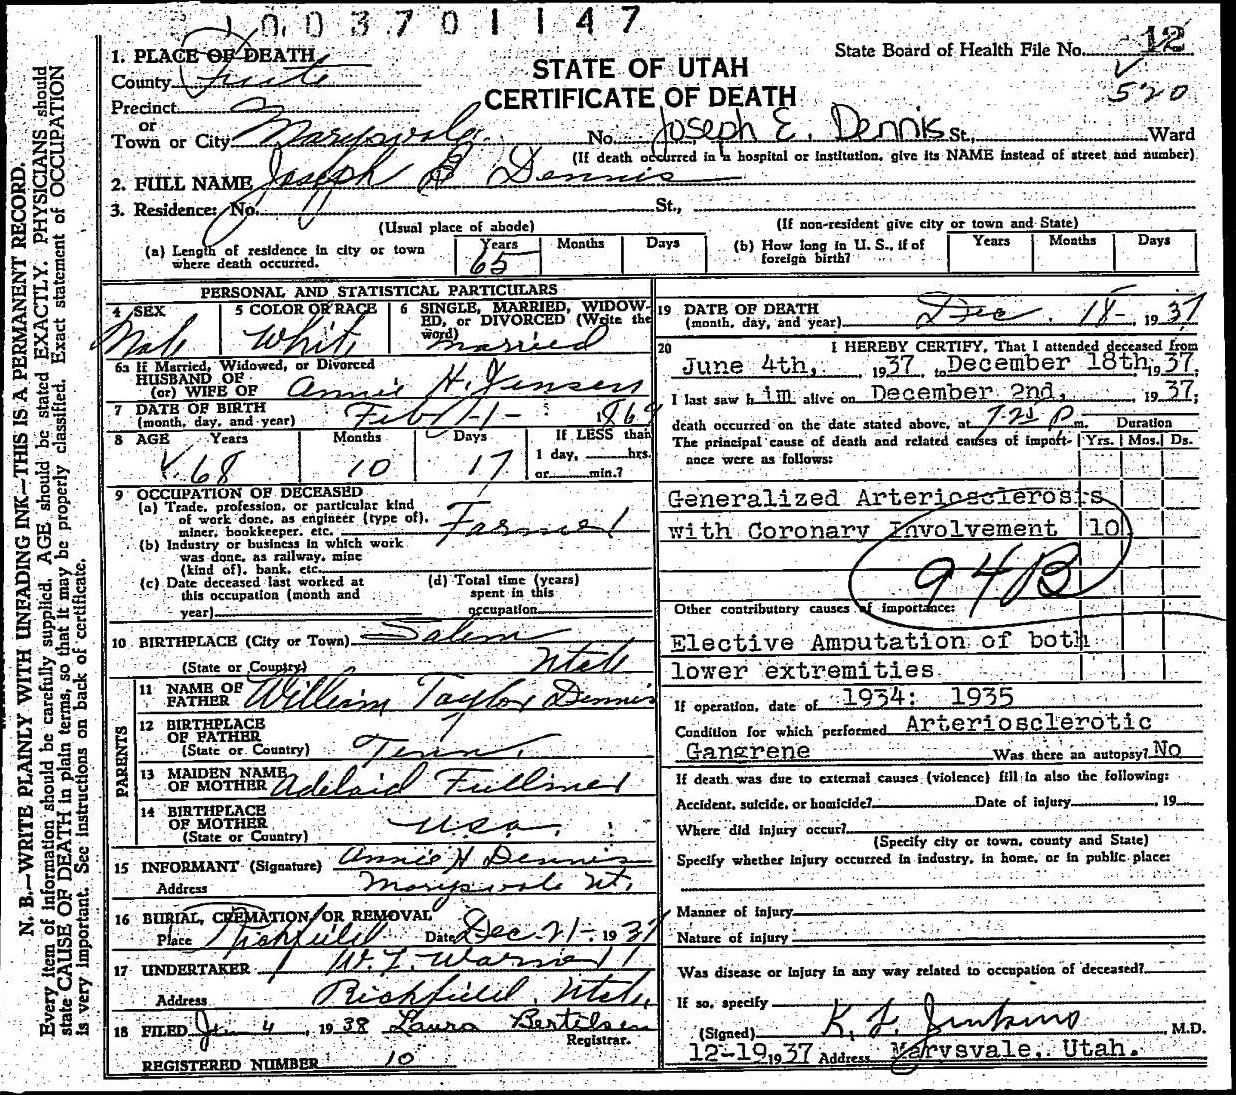 1003701147
1. PLACE OF DEATH
County Piute
State Board of Health File No. 12
520
STATE OF UTAH
CERTIFICATE OF DEATH
Precinct
or
Town or City Marysvale. No. Joseph E. Dennis St., Ward
(If death occurred in a hospital or institution, give its NAME instead of street and number)
2. FULL NAME Joseph E Dennis
3. Residence: No. St.,
(Usual place of abode) (If non-resident give city or town and State)
(a) Length of residence in city or town where death occurred. Years 65 Months Days
(b) How long in U. S., if of foreign birth? Years Months Days
PERSONAL AND STATISTICAL PARTICULARS
4 SEX Male
5 COLOR OR RACE White
6 SINGLE, MARRIED, WIDOWED, or DIVORCED (Write the word) married
6a If Married, Widowed, or Divorced
HUSBAND OF
(or) WIFE OF Annie H. Jensen
7 DATE OF BIRTH
(month, day, and year) Feb -1- 1869
8 AGE Years 68 Months 10 Days 17 If LESS than
1 day, hrs.
or min.?
9 OCCUPATION OF DECEASED
(a) Trade, profession, or particular kind
of work done, as engineer (type of),
miner, bookkeeper, etc. Farmer
(b) Industry or business in which work
was done, as railway, mine
(kind of), bank, etc.
(c) Date deceased last worked at
this occupation (month and
year)
(d) Total time (years)
spent in this
occupation
10 BIRTHPLACE (City or Town) Salem
(State or Country) Utah
PARENTS
11 NAME OF
FATHER William Taylor Dennis
12 BIRTHPLACE
OF FATHER
(State or Country) Tenn.
13 MAIDEN NAME
OF MOTHER Adelaid Fullmer
14 BIRTHPLACE
OF MOTHER
(State or Country) USA.
15 INFORMANT (Signature) Annie H Dennis
Address Marysvale Ut.
16 BURIAL, CREMATION OR REMOVAL
Place Richfield Date Dec-21-1937
17 UNDERTAKER
Address Richfield, Utah.
18 FILED Jan 4, 1938 Laura Bertelsen
Registrar.
REGISTERED NUMBER 10
19 DATE OF DEATH
(month, day, and year) Dec. 18-, 1937
20 I HEREBY CERTIFY, That I attended deceased from
June 4th, 1937 to December 18th, 1937;
I last saw him alive on December 2nd, 1937;
death occurred on the date stated above, at 7.25 P m. Duration
The principal cause of death and related causes of importance were as follows: Yrs. Mos. Ds.
Generalized Arteriosclerosis
with Coronary Involvement 10
94B
Other contributory causes of importance:
Elective Amputation of both
lower extremities
If operation, date of 1934: 1935
Condition for which performed Arteriosclerotic
Gangrene Was there an autopsy? No
If death was due to external causes (violence) fill in also the following:
Accident, suicide, or homicide? Date of injury , 19
Where did injury occur?
(Specify city or town, county and State)
Specify whether injury occurred in industry, in home, or in public place:
Manner of injury
Nature of injury
Was disease or injury in any way related to occupation of deceased?
If so, specify
(Signed) K. L. Jenkins M.D.
12-19 1937 Address Marysvale, Utah.
N. B.—WRITE PLAINLY WITH UNFADING INK—THIS IS A PERMANENT RECORD.
Every item of information should be carefully supplied. AGE should be stated EXACTLY. PHYSICIANS should
state CAUSE OF DEATH in plain terms, so that it may be properly classified. Exact statement of OCCUPATION
is very important. See instructions on back of certificate.